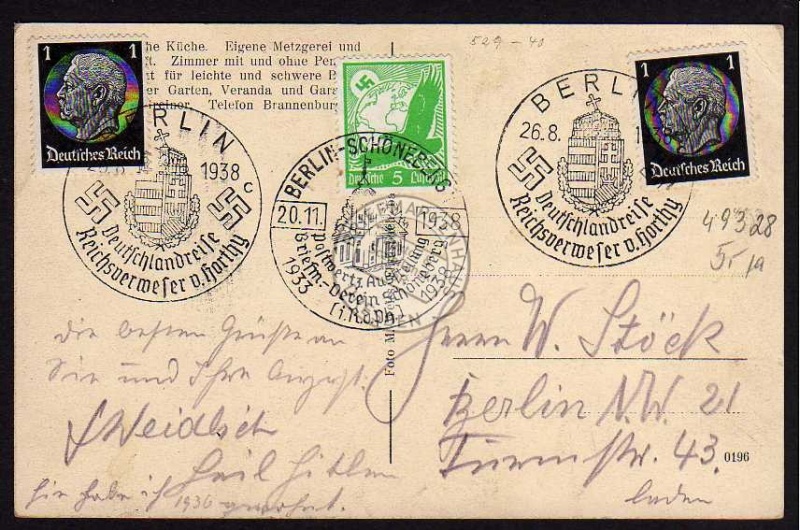 529-40
che Küche. Eigene Metzgerei und
ft. Zimmer mit und ohne Pen
tt für leichte und schwere B
er Garten, Veranda und Gara
Telefon Brannenburg
1
Deutsches Reich
BERLIN
1938
c
Deutschlandreise
Reichsverweser v. Horthy
Deutsche 5 Luftpost
BERLIN-SCHÖNEBERG
20.11.
1938
Postwertz. Ausstellung
Briefm.-Verein Schöneberg
1933
1938
[i.R.d.Ph.]
1
Deutsches Reich
BERLIN
26.8.
Deutschlandreise
Reichsverweser v. Horthy
49328
5,- ja
Foto M.
die besten Grüße an
Sie und Ihre
Heil Hitler
hier habe ich 1936 gewohnt.
Herrn W. Stöck
Berlin N.W. 21
Turmstr. 43.
Laden
0196